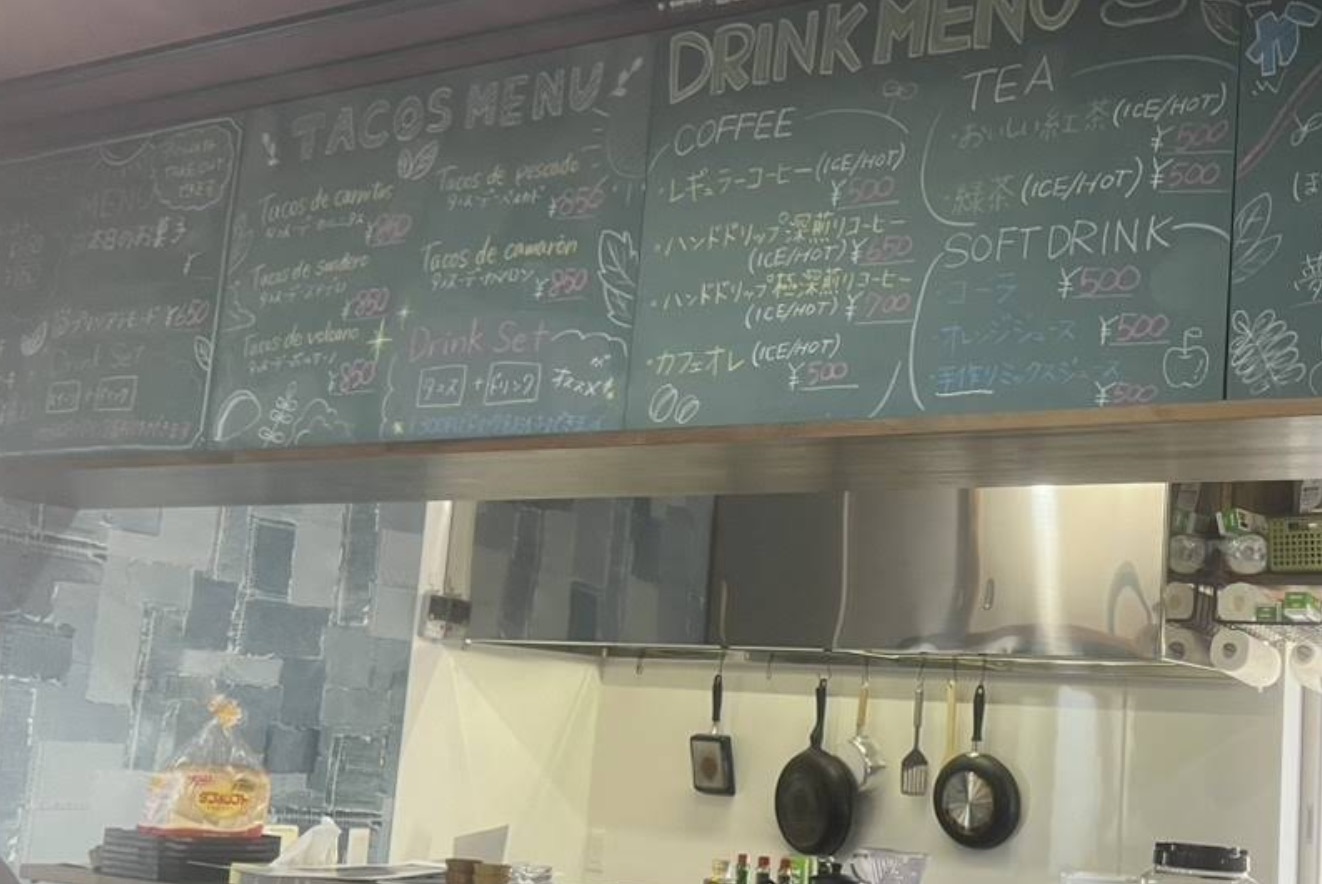 MENU
本日のお菓子
¥
¥650
Drink Set
TACOS MENU
Tacos de carnitas
¥850
Tacos de suadero
¥850
Tacos de volcano
¥850
Tacos de pescado
Tacos de camarón
タコス・デ・カマロン ¥850
Drink Set
タコス + ドリンク オススメ!
DRINK MENU
COFFEE
・レギュラーコーヒー (ICE/HOT)
¥500
・ハンドドリップ深煎りコーヒー
(ICE/HOT) ¥650
・ハンドドリップ極深煎りコーヒー
(ICE/HOT) ¥700
・カフェオレ (ICE/HOT)
¥500
TEA
・おいしい紅茶 (ICE/HOT)
¥500
・緑茶 (ICE/HOT) ¥500
SOFT DRINK
・コーラ ¥500
・オレンジジュース ¥500
・手作りミックスジュース
¥500